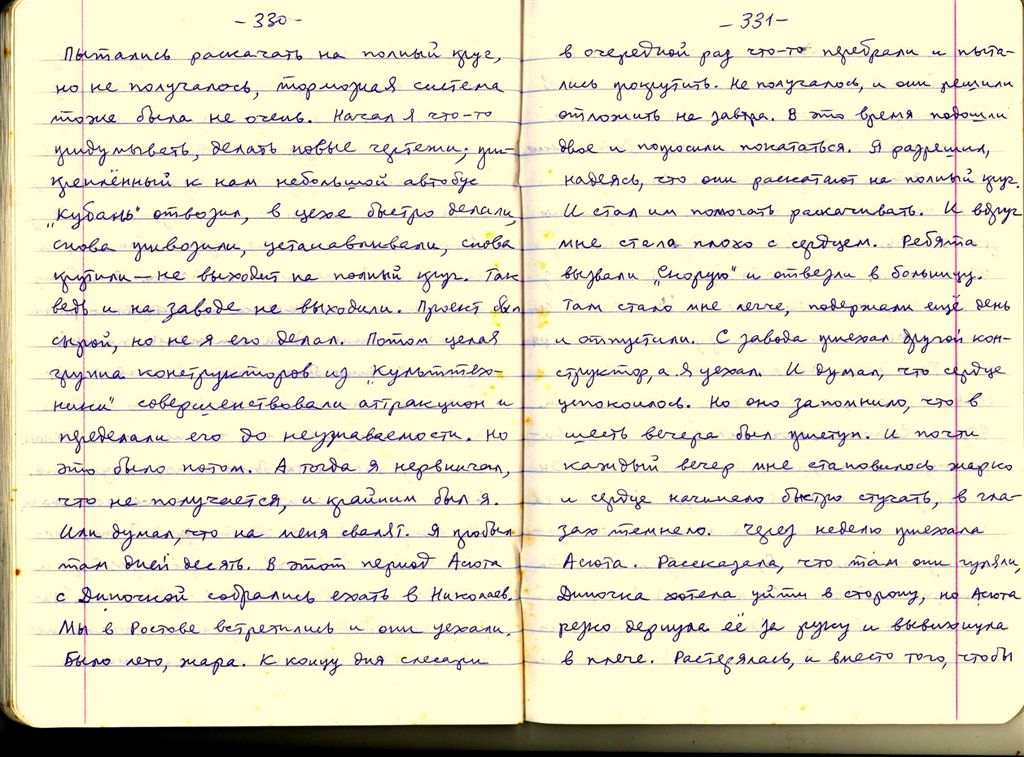 -330-
Пытались раскачать на полный круг,
но не получалось, тормозная система
тоже была не очень. Начал я что-то
придумывать, делать новые чертежи; при-
креплённый к нам небольшой автобус
„Кубань" отвозил, в цехе быстро делали,
снова привозили, устанавливали, снова
крутили — не выходит на полный круг. Так
ведь и на заводе не выходили. Проект был
сырой, но не я его делал. Потом целая
группа конструкторов из „Культтех-
ники" совершенствовали аттракцион и
переделали его до неузнаваемости. Но
это было потом. А тогда я нервничал,
что не получается, и крайним был я.
Или думал, что на меня свалят. Я пробыл
там дней десять. В этот период Асюта
с Диночкой собрались ехать в Николаев.
Мы в Ростове встретились и они уехали.
Было лето, жара. К концу дня слесари
-331-
в очередной раз что-то перебрали и пыта-
лись прокрутить. Не получалось, и они решили
отложить на завтра. В это время подошли
двое и попросили покататься. Я разрешил,
надеясь, что они раскатают на полный круг.
И стал им помогать раскачивать. И вдруг
мне стало плохо с сердцем. Ребята
вызвали „Скорую" и отвезли в больницу.
Там стало мне легче, подержали ещё день
и отпустили. С завода приехал другой кон-
структор, а я уехал. И думал, что сердце
успокоилось. Но оно запомнило, что в
шесть вечера был приступ. И почти
каждый вечер мне становилось жарко
и сердце начинало быстро стучать, в гла-
зах темнело. Через неделю приехала
Асюта. Рассказала, что там они гуляли,
Диночка хотела уйти в сторону, но Асюта
резко дернула её за руку и вывихнула
в плече. Растерялась, и вместо того, чтобы